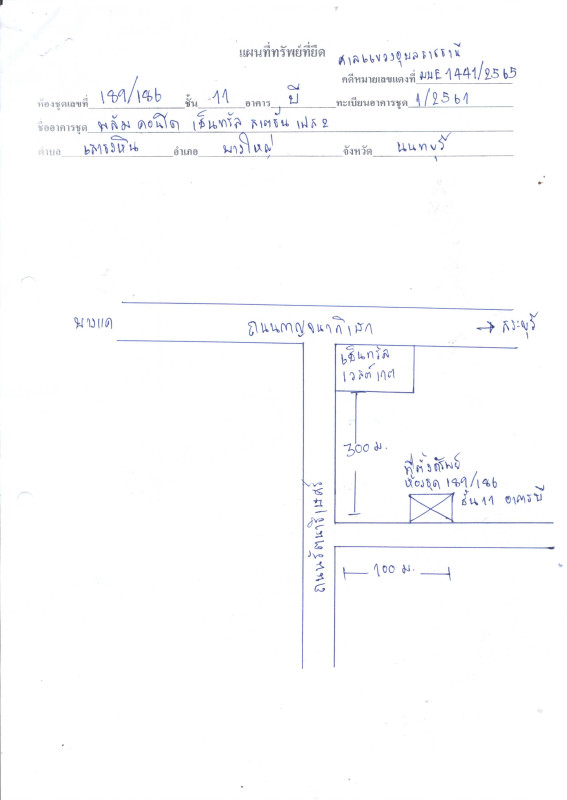 แผนที่ทรัพย์ที่ยึด
ศาลแขวงอุบลราชธานี
คดีหมายเลขแดงที่ ผบE1441/2565
ห้องชุดเลขที่ 189/186 ชั้น 11 อาคาร บี ทะเบียนอาคารชุด 1/2561
ชื่ออาคารชุด พลัม คอนโด เซ็นทรัล สเตชั่น เฟส 2
ตำบล เสาธงหิน อำเภอ บางใหญ่ จังหวัด นนทบุรี
บางแค ถนนกาญจนาภิเษก → สระบุรี
เซ็นทรัล
เวสต์เกต
300 ม.
ที่ตั้งทรัพย์
ห้องชุด 189/186
ชั้น 11 อาคารบี
ถนนรัตนาธิเบศร์
100 ม.